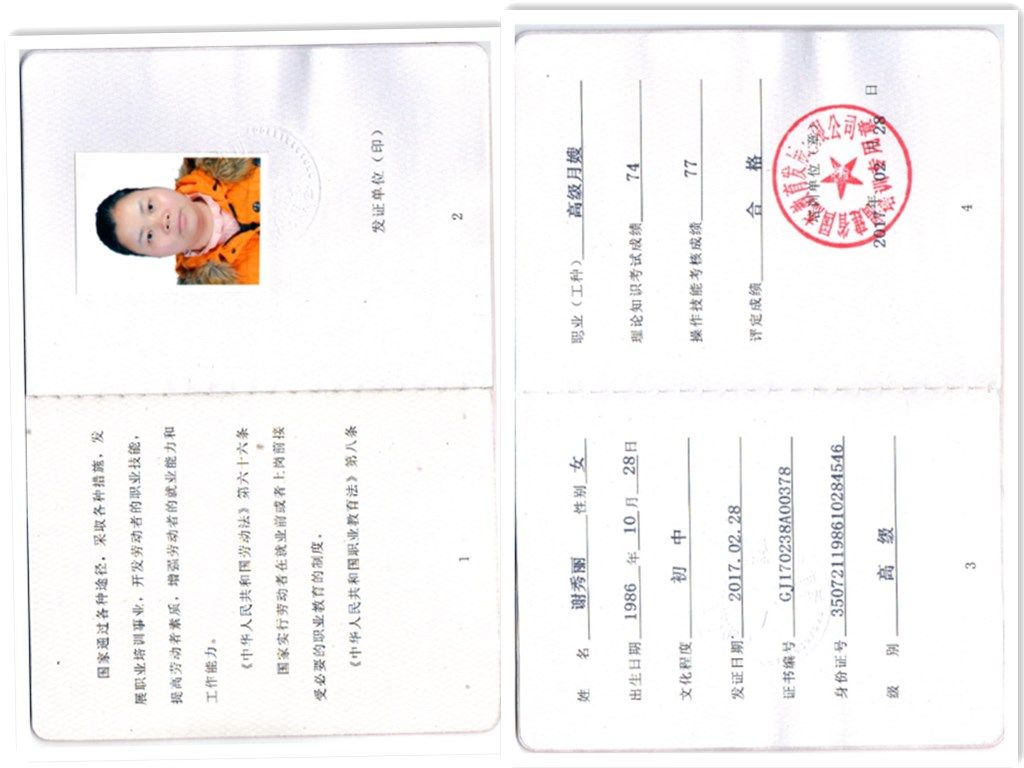 国家通过各种途径，采取各种措施，发
展职业培训事业，开发劳动者的职业技能，
提高劳动者素质，增强劳动者的就业能力和
工作能力。
《中华人民共和国劳动法》第六十六条
国家实行劳动者在就业前或者上岗前接
受必要的职业教育的制度。
《中华人民共和国职业教育法》第八条
1
发证单位（印）
2
姓 名 谢秀丽 性别 女
出生日期 1986 年 10 月 28 日
文化程度 初 中
发证日期 2017.02.28
证书编号 GJ170238A00378
身份证号 350721198610284546
级 别 高 级
3
职业（工种） 高级月嫂
理论知识考试成绩 74
操作技能考核成绩 77
评定成绩 合 格
培训单位（章）
2017 年 02 月 28 日
4